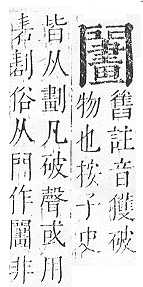 舊註音獲破
物也按子史
皆从劃凡破聲或用
砉剨俗从門作非